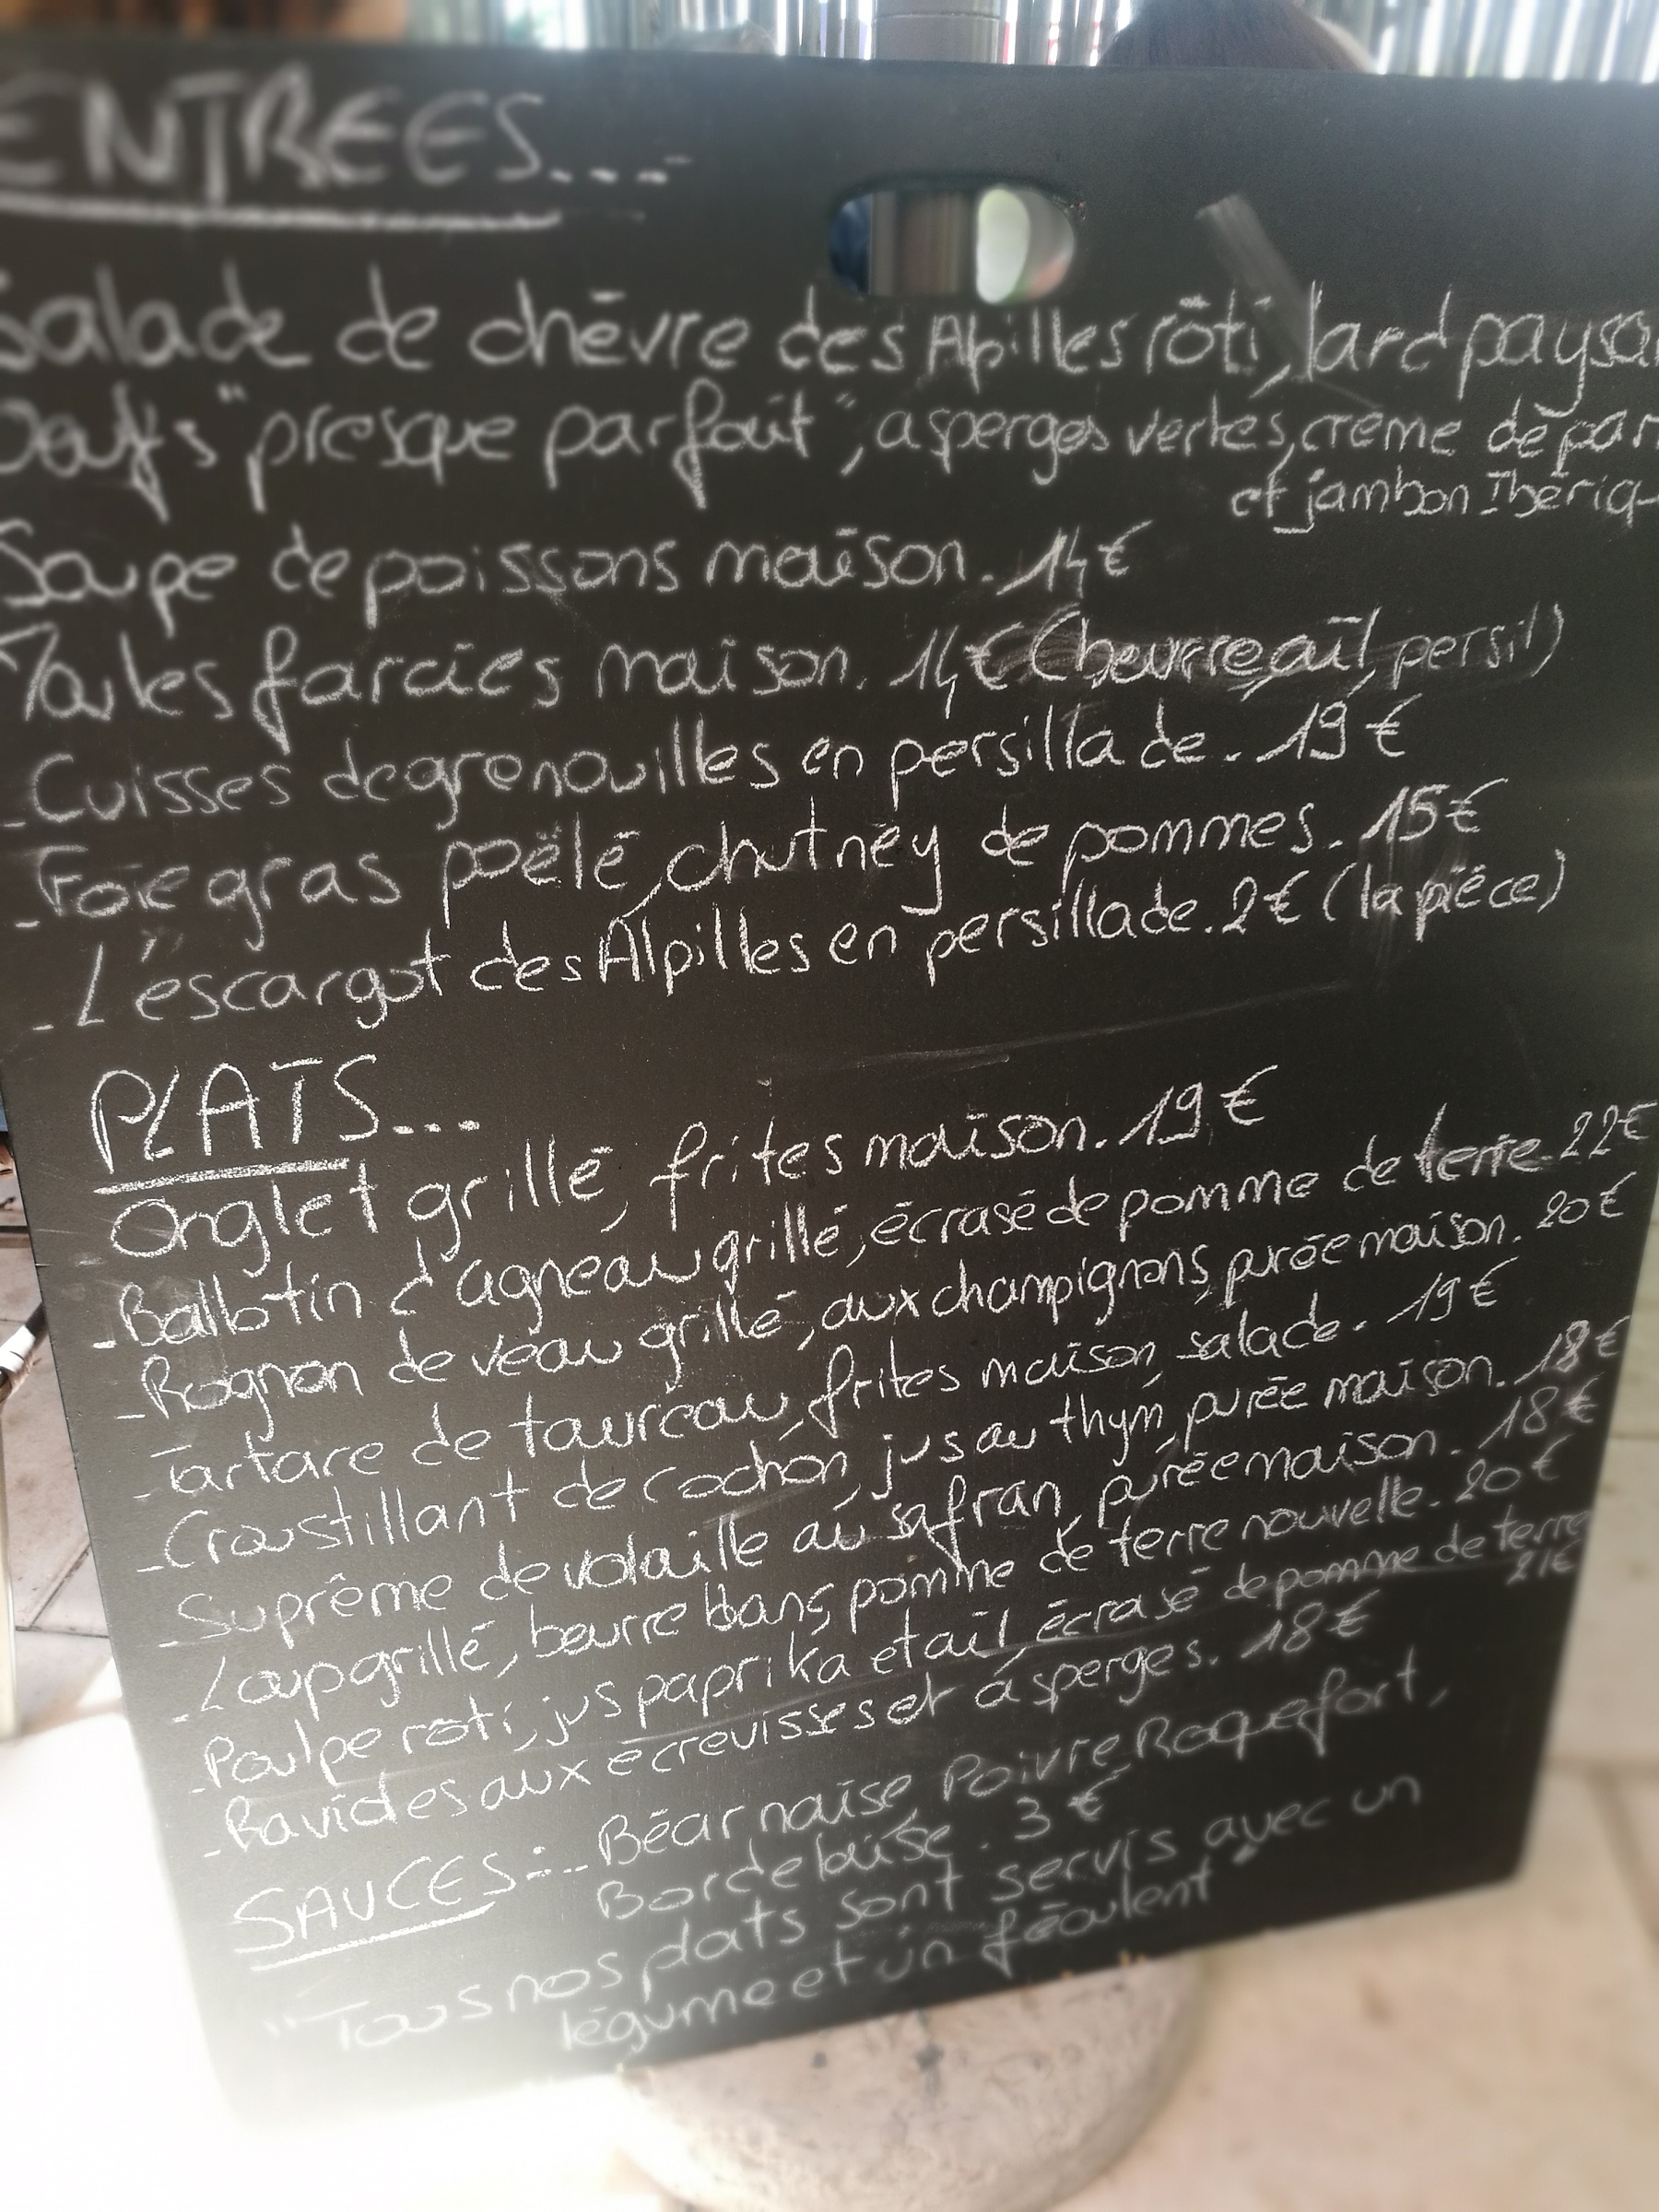 ENTREES....
Salade de chèvre des Alpilles rôti, lard paysa
Oeufs "presque parfait", asperges vertes, crème de par
et jambon Ibériq
Soupe de poissons maison. 14€
Moules farcies maison. 14€ (beurre, ail, persil)
- Cuisses de grenouilles en persillade. 19€
- Foie gras poêlé, chutney de pommes. 15€
- L'escargot des Alpilles en persillade. 2€ (la pièce)
PLATS...
Onglet grillé, frites maison. 19€
- Ballotin d'agneau grillé, écrasé de pomme de terre. 22€
- Rognon de veau grillé, aux champignons, purée maison. 20€
- Tartare de taureau, frites maison, salade. 19€
- Croustillant de cochon, jus au thym, purée maison. 18€
- Suprême de volaille au safran, purée maison. 18€
- Loup grillé, beurre blanc, pomme de terre nouvelle. 20€
- Poulpe rôti, jus paprika et ail, écrasé de pomme de terre
21€
- Ravioles aux écrevisses et asperges. 18€
SAUCES... Béarnaise, Poivre, Roquefort,
Bordelaise. 3€
"Tous nos plats sont servis avec un
légume et un féculent"